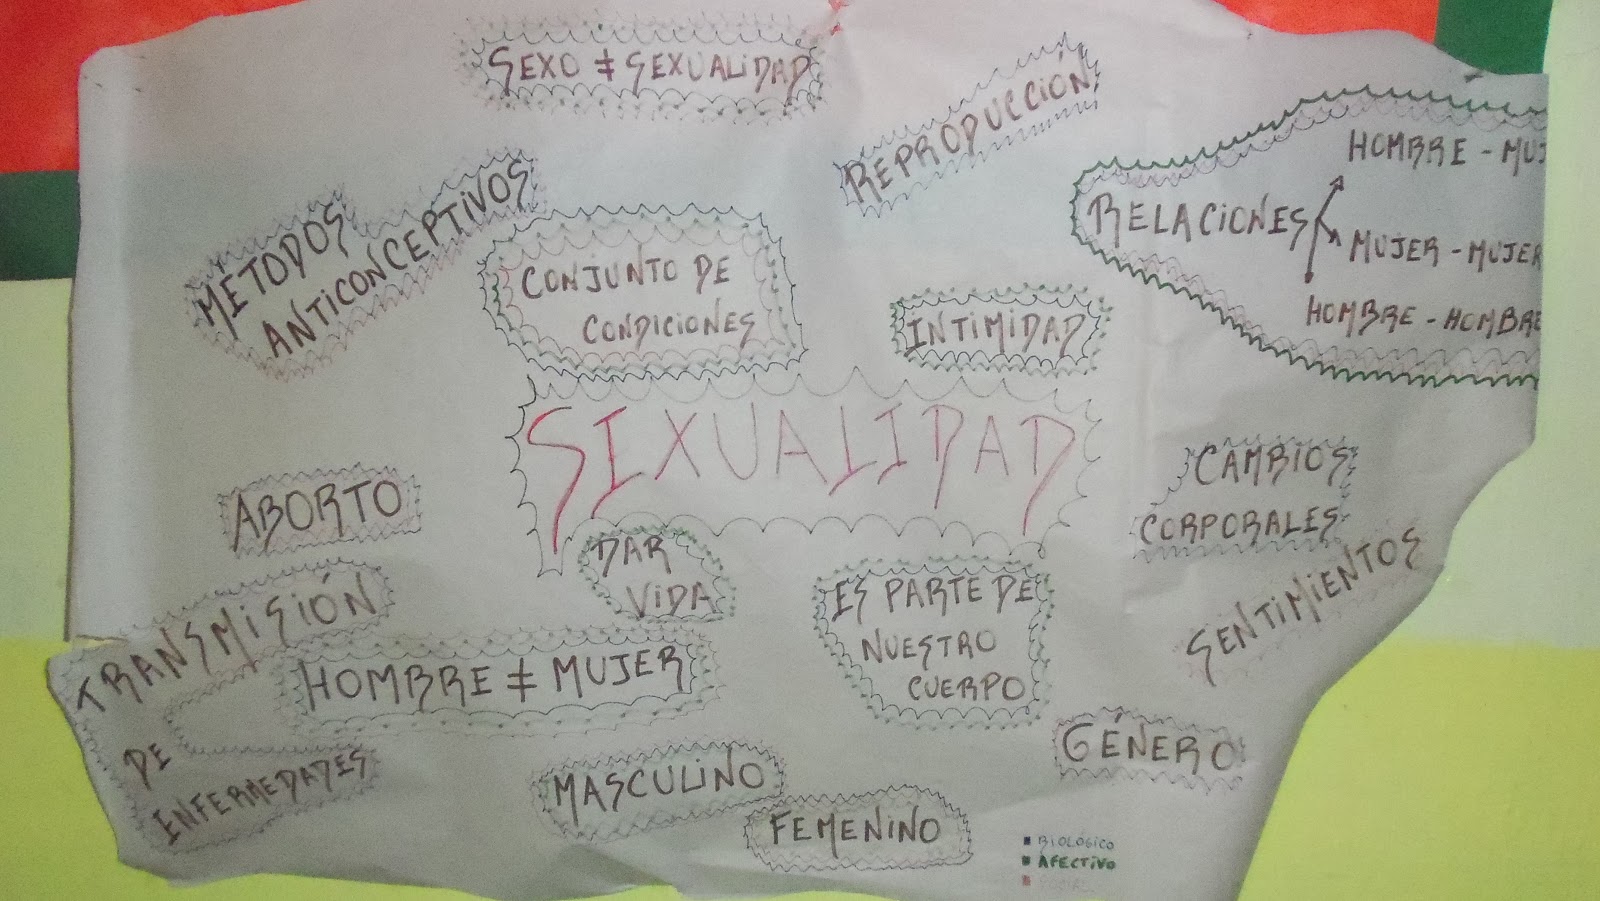 SEXO ≠ SEXUALIDAD
REPRODUCCIÓN
RELACIONES
HOMBRE - MUJ
MUJER - MUJER
HOMBRE - HOMBRE
METODOS
ANTICONCEPTIVOS
CONJUNTO DE
CONDICIONES
INTIMIDAD
SEXUALIDAD
ABORTO
CAMBIOS
CORPORALES
DAR
VIDA
ES PARTE DE
NUESTRO
CUERPO
SENTIMIENTOS
TRANSMISIÓN
DE
ENFERMEDADES
HOMBRE ≠ MUJER
GÉNERO
MASCULINO
FEMENINO
BIOLÓGICO
AFECTIVO
SOCIAL